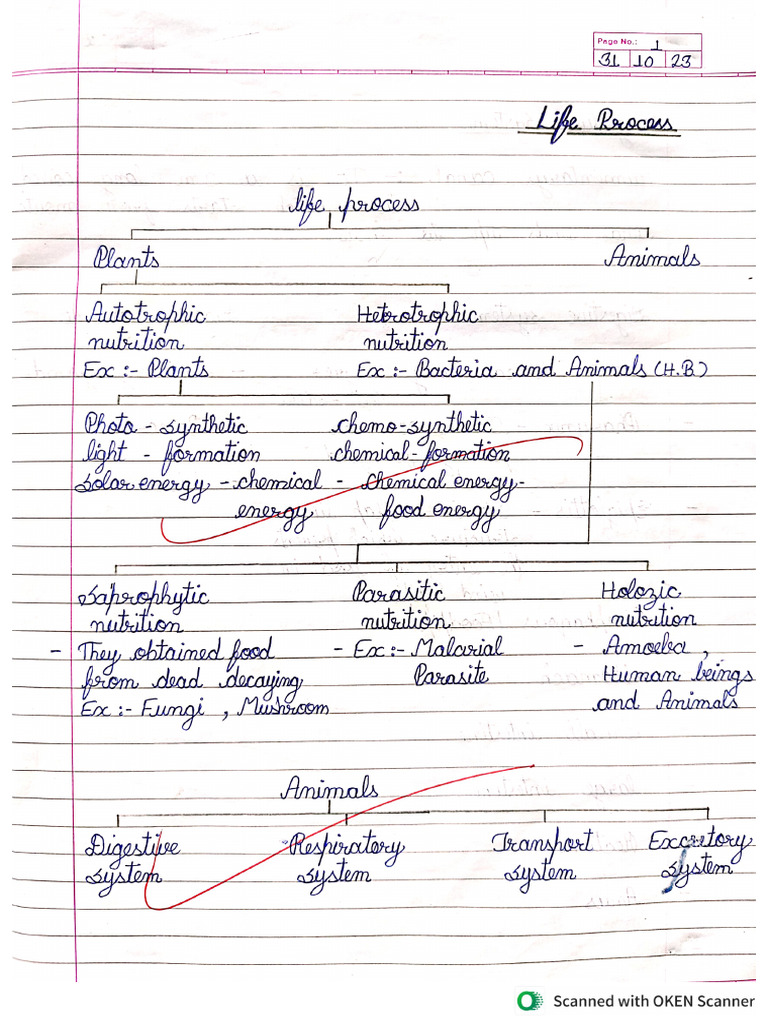 Page No.: 1
31 10 23
Life Process
life process
Plants Animals
Autotrophic Hetrotrophic
nutrition nutrition
Ex :- Plants Ex :- Bacteria and Animals (H.B)
Photo - synthetic chemo-synthetic
light - formation chemical-formation
solar energy - chemical - chemical energy-
energy food energy
Saprophytic Parasitic Holozic
nutrition nutrition nutrition
- They obtained food - Ex :- Malarial - Amoeba ,
from dead decaying Parasite Human beings
Ex :- Fungi , Mushroom and Animals
Animals
Digestive Respiratory Transport Excretory
system system system system
Scanned with OKEN Scanner